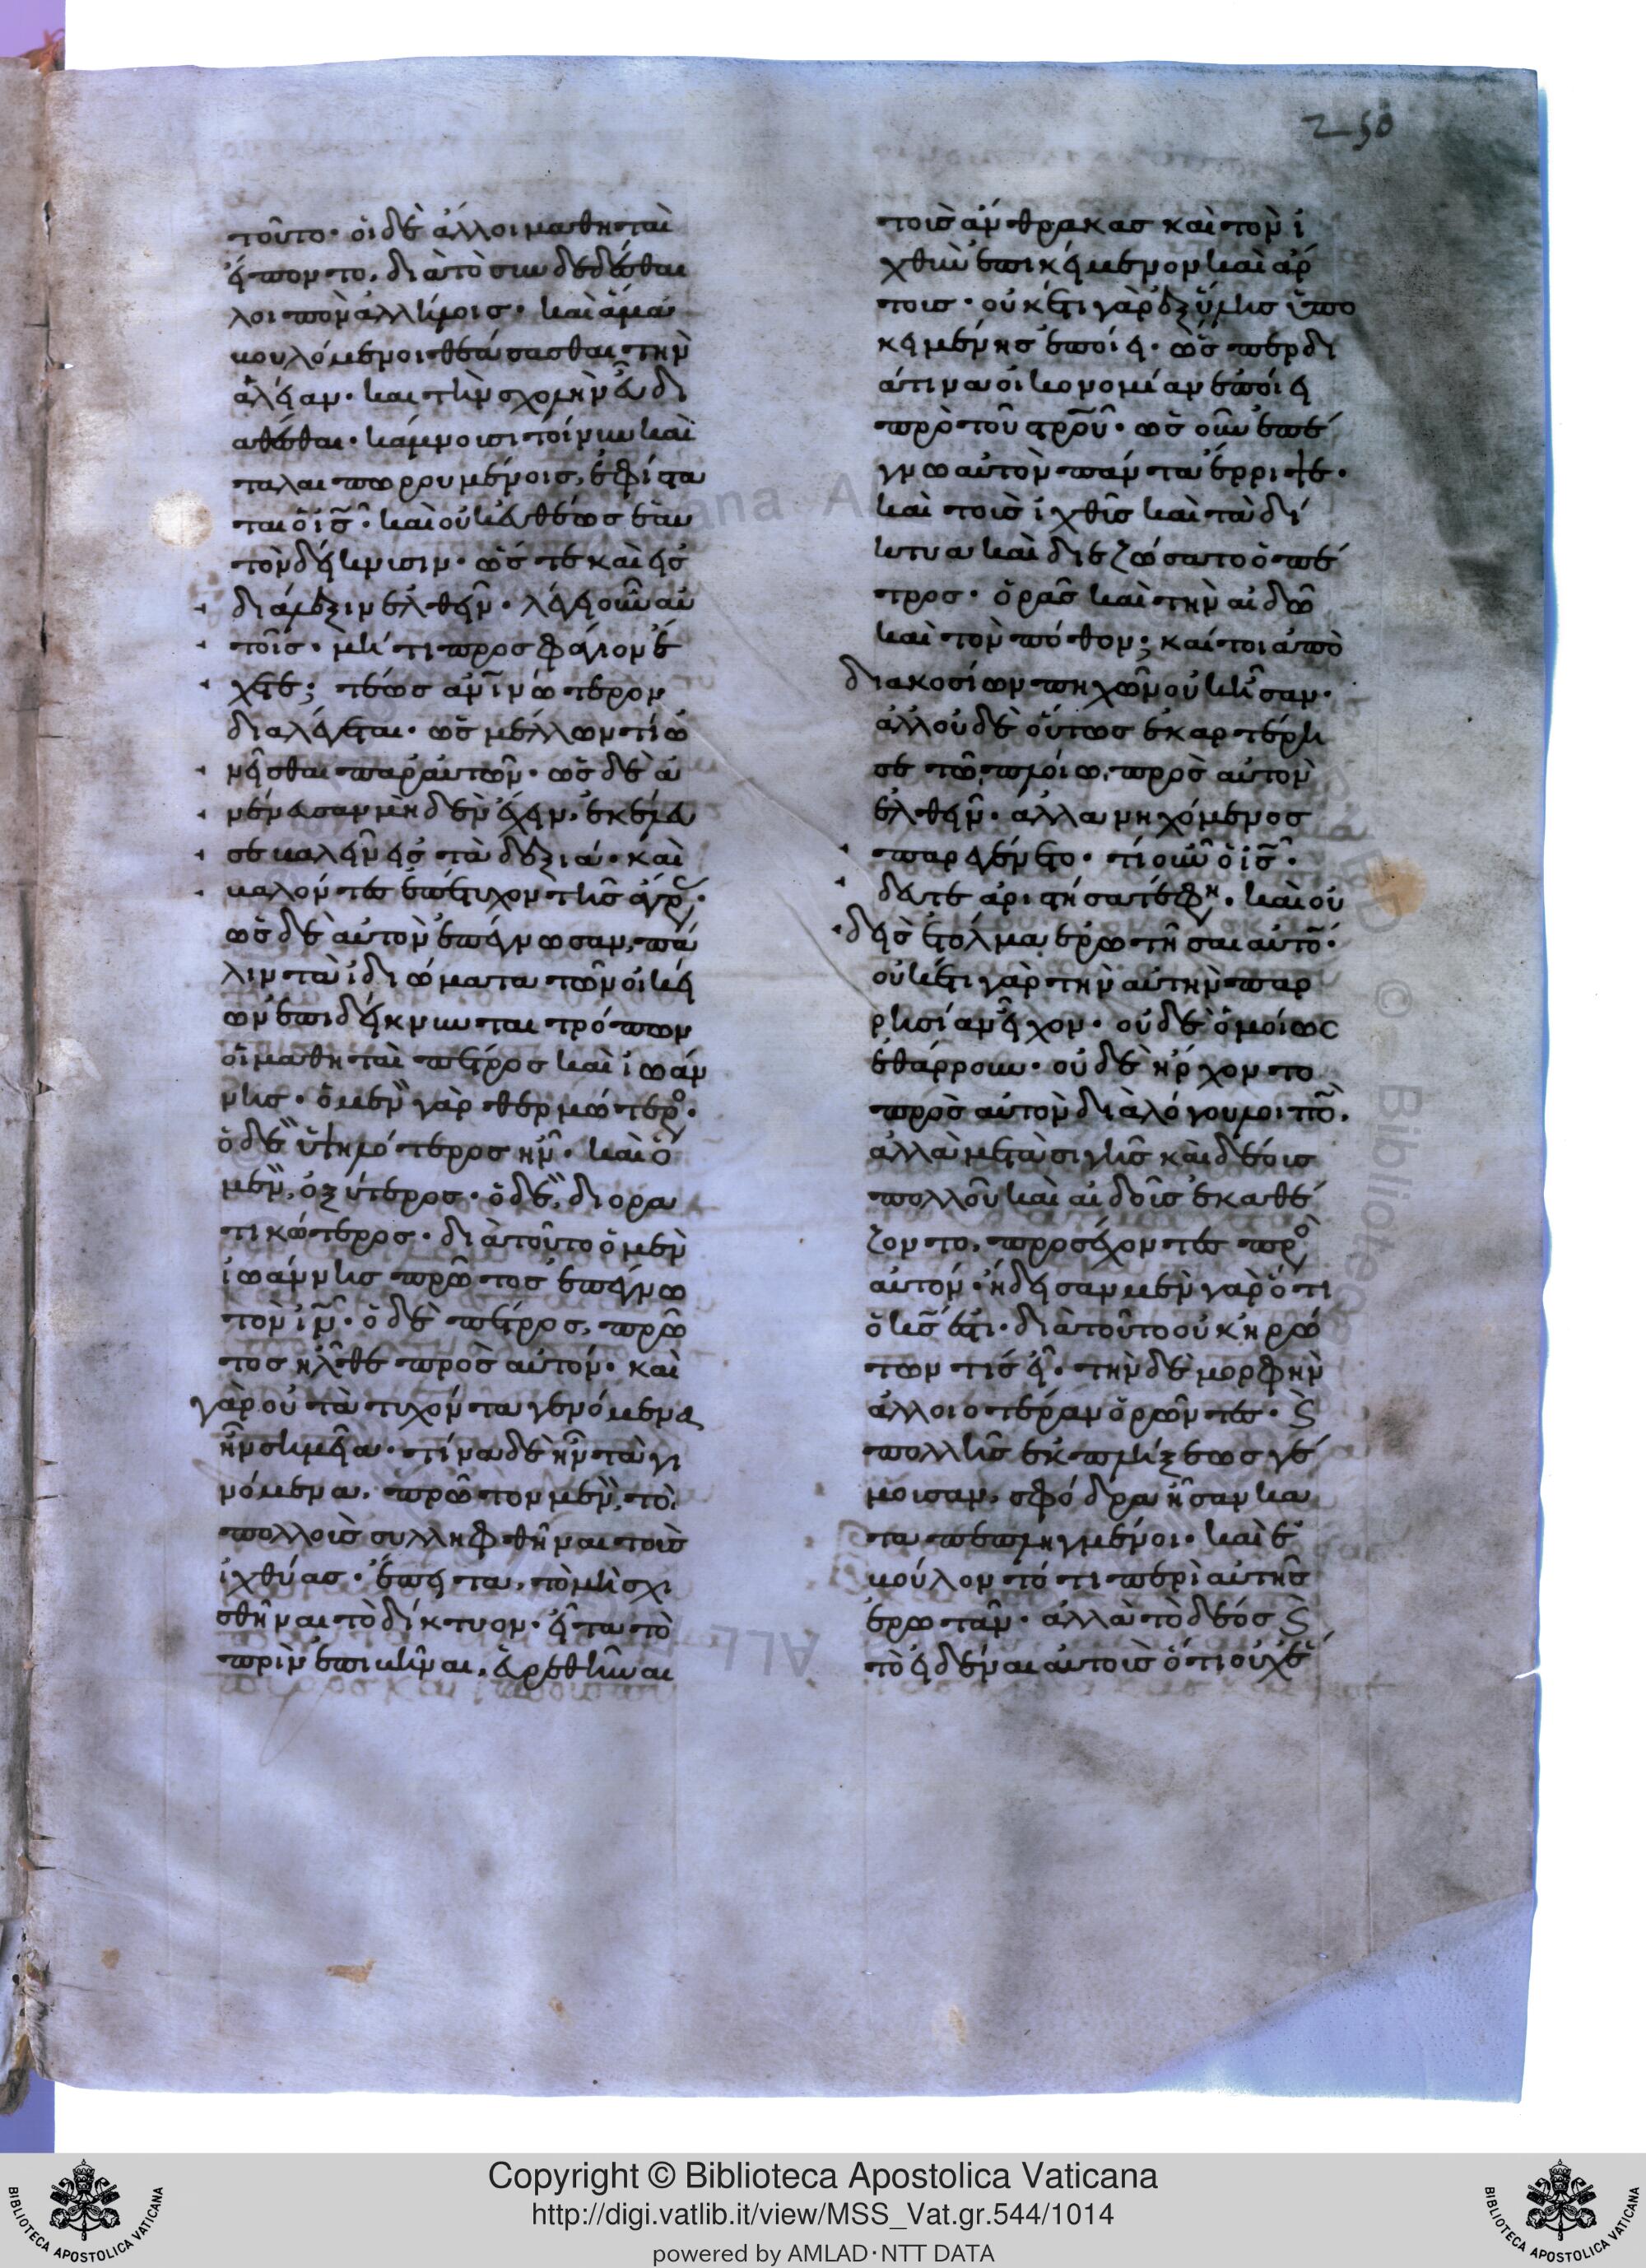 250
τοῦτο· οἱ δὲ ἄλλοι μαθηταὶ
εἵποντο, διὰ τὸ συνδεδέσθαι
λοιπὸν ἀλλήλοις· καὶ ἅμα
βουλόμενοι θεάσασθαι τὴν
ἁλείαν· καὶ τὴν σχολὴν εὖ δι
αθέσθαι· κάμνουσι τοίνυν καὶ
ταλαιπωρουμένοις, ἐφίστα
ται ὁ ἰς̅· καὶ οὐκ εὐθέως ἑαυ
τὸν δείκνυσιν· ὥστε καὶ εἰς
διάλεξιν ἐλθεῖν· λέγει οὖν αὐ
τοῖς· μή τι προσφάγιον ἔ
χετε; τέως ἀνθρωπινώτερον
διαλέγεται· ὡς μέλλων τι ὠ
νεῖσθαι παρ' αὐτῶν· ὡς δὲ ἀ
νένευσαν μηδὲν ἔχειν, ἐκέλευ
σε βαλεῖν εἰς τὰ δεξιά· καὶ
βαλόντες ἐπέτυχον τῆς ἄγρ·
ὡς δὲ αὐτὸν ἐπέγνωσαν, πά
λιν τὰ ἰδιώματα τῶν οἰκεί
ων ἐπιδείκνυνται τρόπων
οἱ μαθηταὶ πέτρος καὶ ἰωάν
νης· ὁ μὲν γὰρ θερμότερο·
ὁ δὲ ὑψηλότερος ἦν· καὶ ὁ
μὲν, ὀξύτερος· ὁ δὲ, διορα
τικώτερος· διὰ τοῦτο ὁ μὲν
ἰωάννης πρῶτος ἐπέγνω
τὸν ἰν̅· ὁ δὲ πέτρος, πρῶ
τος ἦλθε πρὸς αὐτόν· καὶ
γὰρ οὐ τὰ τυχόντα γενόμενα
ἦν σημεῖα· τίνα δὲ ἦν τὰ γι
νόμενα, πρῶτον μὲν, τὸ
πολλοὺς συλληφθῆναι τοὺς
ἰχθύας· ἔπειτα, τὸ μὴ σχι
σθῆναι τὸ δίκτυον· εἶτα τὸ
πρὶν ἐπιβῆναι, εὑρεθῆναι
τοὺς ἄνθρακας καὶ τὸν ἰ
χθὺν ἐπικείμενον καὶ ἄρ
τους· οὐκέτι γὰρ ἐξ ὕλης ὑπο
κειμένης ἐποίει· ὥσπερ δι
ά τινα οἰκονομίαν ἐποίει
πρὸ τοῦ στροῦ· ὡς οὖν ἐπέ
γνω αὐτὸν πάντα ἔρριψε·
καὶ τοὺς ἰχθῦς καὶ τὰ δί
κτυα καὶ διεζώσατο ὁ πέ
τρος· ὁρᾷς καὶ τὴν αἰδῶ
καὶ τὸν πόθον; καίτοι ἀπὸ
διακοσίων πηχῶν οὐκ ἦσαν·
ἀλλ' οὐδὲ οὕτως ἐκαρτέρη
σε τῷ πλοίῳ, πρὸς αὐτὸν
ἐλθεῖν· ἀλλὰ νηχόμενος
παρεγένετο· τί οὖν ὁ ἰς̅·
δεῦτε ἀριστήσατέ φη· καὶ οὐ
δεὶς ἐτόλμα ἐρωτῆσαι αὐτο·
οὐκέτι γὰρ τὴν αὐτὴν παρ
ρησίαν εἶχον· οὐδὲ ὁμοίως
ἐθάρρουν· οὐδὲ ἤρχοντο
πρὸς αὐτὸν διὰ λόγου λοιπο·
ἀλλὰ μετὰ σιγῆς καὶ δέους
πολλοῦ καὶ αἰδοῦς ἐκαθέ
ζοντο, προσέχοντες προ
αὐτόν· ᾔδεισαν μὲν γὰρ ὅτι
ὁ κς̅ ἐστι· διὰ τοῦτο οὐκ ἠρώ
των τίς εἶ· τὴν δὲ μορφὴν
ἀλλοιοτέραν ὁρῶντες· ϗ
πολλῆς ἐκπλήξεως γέ
μουσαν, σφόδρα ἦσαν κα
ταπεπληγμένοι· καὶ ἐ
βούλοντό τι περὶ αὐτῆς
ἐρωτᾶν· ἀλλὰ τὸ δέος ϗ
τὸ εἰδέναι αὐτοὺς ὅτι οὐχ ἕ
Copyright © Biblioteca Apostolica Vaticana
http://digi.vatlib.it/view/MSS_Vat.gr.544/1014
powered by AMLAD·NTT DATA
BIBLIOTECA APOSTOLICA VATICANA
BIBLIOTECA APOSTOLICA VATICANA